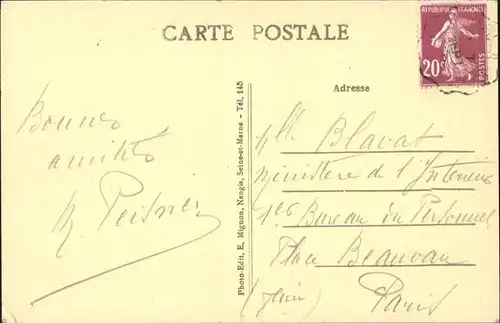 CARTE POSTALE
RÉPUBLIQUE FRANÇAISE
20c
POSTES
Adresse
Bonnes
amitiés
Peisner
Photo-Edit, E. Mignon, Nangis, Seine-et-Marne - Tél. 145
Mlle Blavat
Ministère de l'Intérieur
1er Bureau du Personnel
Place Beauvau
Paris